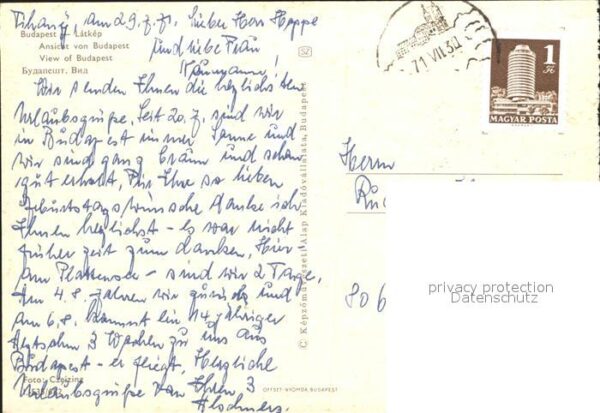 Tihany, am 29.7.71. Lieber Herr Hoppe
und liebe Frau
Budapest Látkép
Ansicht von Budapest
View of Budapest
Будапешт. Вид
Wir senden Ihnen die herzlichsten
Urlaubsgrüße. Seit 20.7. sind wir
in Budapest immer Sonne und
wir sind ganz braun und schon
gut erholt. Für Ihre so lieben
Geburtstagswünsche danke ich
Ihnen herzlichst - es war nicht
früher Zeit zum danken. Hier
am Plattensee - sind wir 2 Tage.
Am 4.8. fahren wir zurück und
am 6.8. kommt ein 14 jähriger
3 Wochen zu uns aus
Budapest - er fliegt. Herzliche
Urlaubsgrüße von Ihren 3
Foto: Czeizing
© Képzőművészeti Alap Kiadóvállalata, Budapest
OFFSET-NYOMDA, BUDAPEST
71 VII 30
1 Ft
MAGYAR POSTA
Herrn
806
privacy protection
Datenschutz